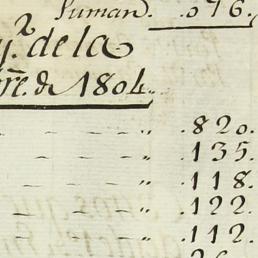 Suman. .096.
y.ª de la
re. de 1804.
- - - „ .820.
- - - „ .135.
- - - „ .118.
- - - „ .122.
- - - „ .112.